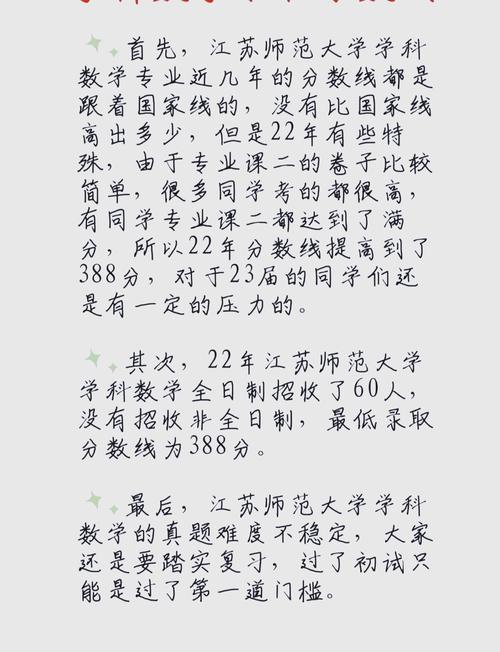 首先，江苏师范大学学科
数学专业近几年的分数线都是
跟着国家线的，没有比国家线
高出多少，但是22年有些特
殊，由于专业课二的卷子比较
简单，很多同学考的都很高，
有同学专业课二都达到了满
分，所以22年分数线提高到了
388分，对于23届的同学们还
是有一定的压力的。
其次，22年江苏师范大学
学科数学全日制招收了60人，
没有招收非全日制，最低录取
分数线为388分。
最后，江苏师范大学学科
数学的真题难度不稳定，大家
还是要踏实复习，过了初试只
能是过了第一道门槛。